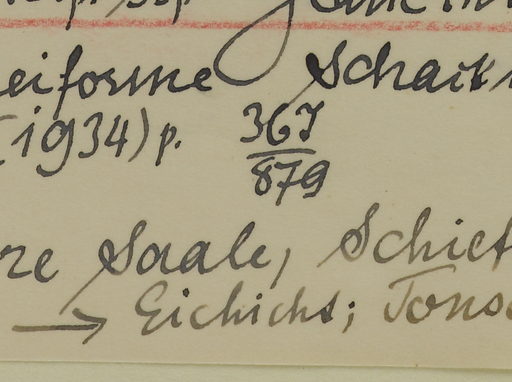 eiforme Schack
(1934) p. 367
879
re Saale, Schief
→ Eichicht; Tonsc